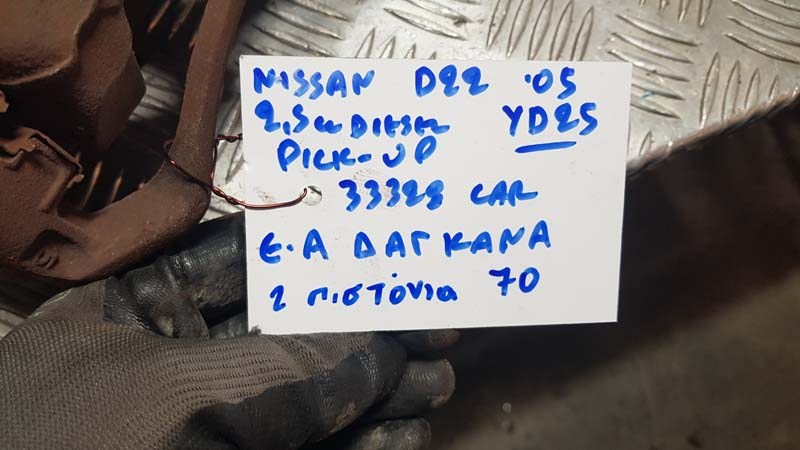 NISSAN D22 '05
2,5cc DIESEL YD25
PICK-UP
33328 CAR
Ε.Α ΔΑΓΚΑΝΑ
2 πιστόνια 70